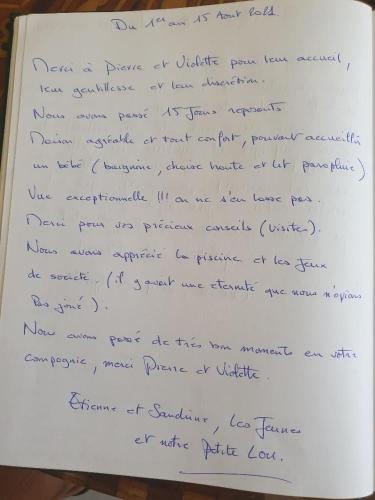 Du 1er au 15 Aout 2021
Merci à Pierre et Violette pour leur accueil,
leur gentillesse et leur discrétion.
Nous avons passé 15 Jours reposants
Maison agréable et tout confort, pouvant accueillir
un bébé (baignoire, chaise haute et lit parapluie)
Vue exceptionnelle !!! on ne s'en lasse pas.
Merci pour vos précieux conseils (visites).
Nous avons apprécié la piscine et les Jeux
de société. (il y avait une eternité que nous n'avions
pas joué).
Nous avons passé de très bon moments en votre
compagnie, merci Pierre et Violette.
Etienne et Sandrine, les Jeunes
et notre Petite Lou.